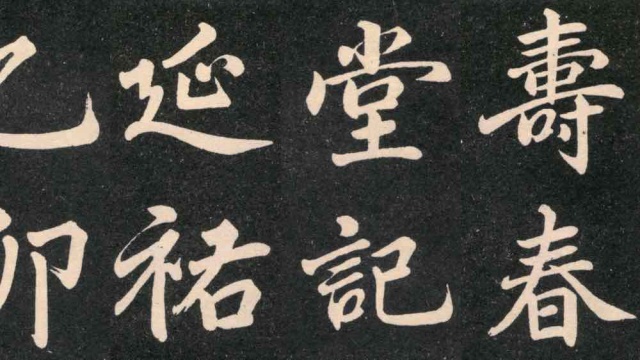 壽春
堂記
延祐
乙卯